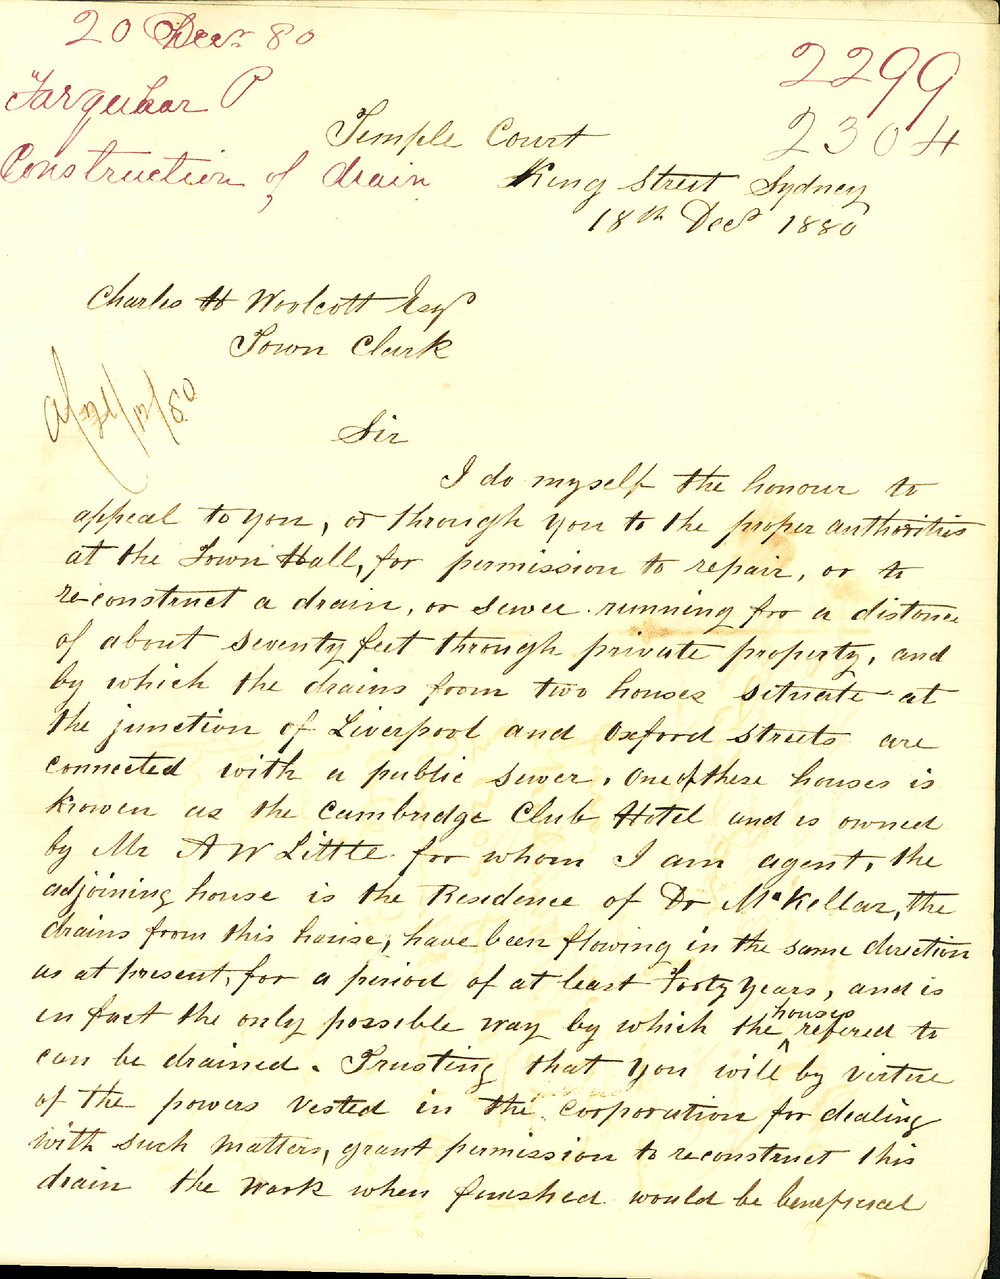 20 Decr 80
Farquhar P
Construction of drain
2299
2304
Temple Court
King Street Sydney
18th Decr 1880
Charles H Woolcott Esqr
Town Clerk
21/12/80
Sir
I do myself the honour to
appeal to you, or through you to the proper authorities
at the Town Hall, for permission to repair, or to
reconstruct a drain, or sewer running for a distance
of about seventy feet through private property, and
by which the drains from two houses situate at
the junction of Liverpool and Oxford Streets are
connected with a public sewer. One of these houses is
known as the Cambridge Club Hotel and is owned
by Mr A W Little for whom I am agent, the
adjoining house is the Residence of Dr McKellar, the
drains from this house, have been flowing in the same direction
as at present, for a period of at least Forty years, and is
in fact the only possible way by which the houses refered to
can be drained. Trusting that you will by virtue
of the powers vested in the Corporation for dealing
with such matters, grant permission to reconstruct this
drain the work when finished would be beneficial